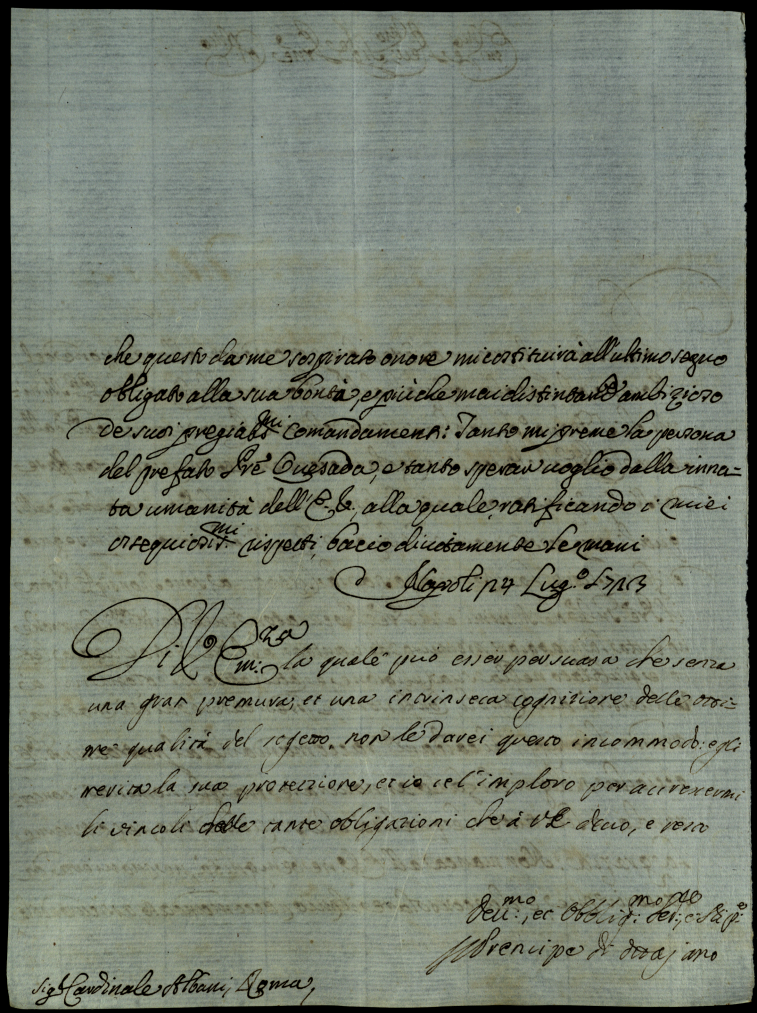 che questo da me sospirato onore mi costituirà all'ultimo segno
obligato alla sua bontà, e più che mai distintamte ambizioso
de suoi pregiatmi comandamenti: Tanto mi preme la persona
del prefato Pre Quesada, e tanto sperar voglio dalla inna-
ta umanità dell'E. V., alla quale ratificando i miei
ossequiosismi rispetti, bacio divotamente le mani
Napoli 24 Lugo 1723
Di V. Emza la quale può esser persuasa che senza
una gran premura, et una intrinseca cognizione delle otti-
me qualità del sogetto, non le darei questo incommodo: egli
merita la sua protezzione, et io ce l'imploro per accrescermi
li vincoli delle tante obligazioni che à V.E. devo, e resto
devmo, et Obbligmo
Prencipe di Ottajano
Sigr Cardinale Albani, Roma,